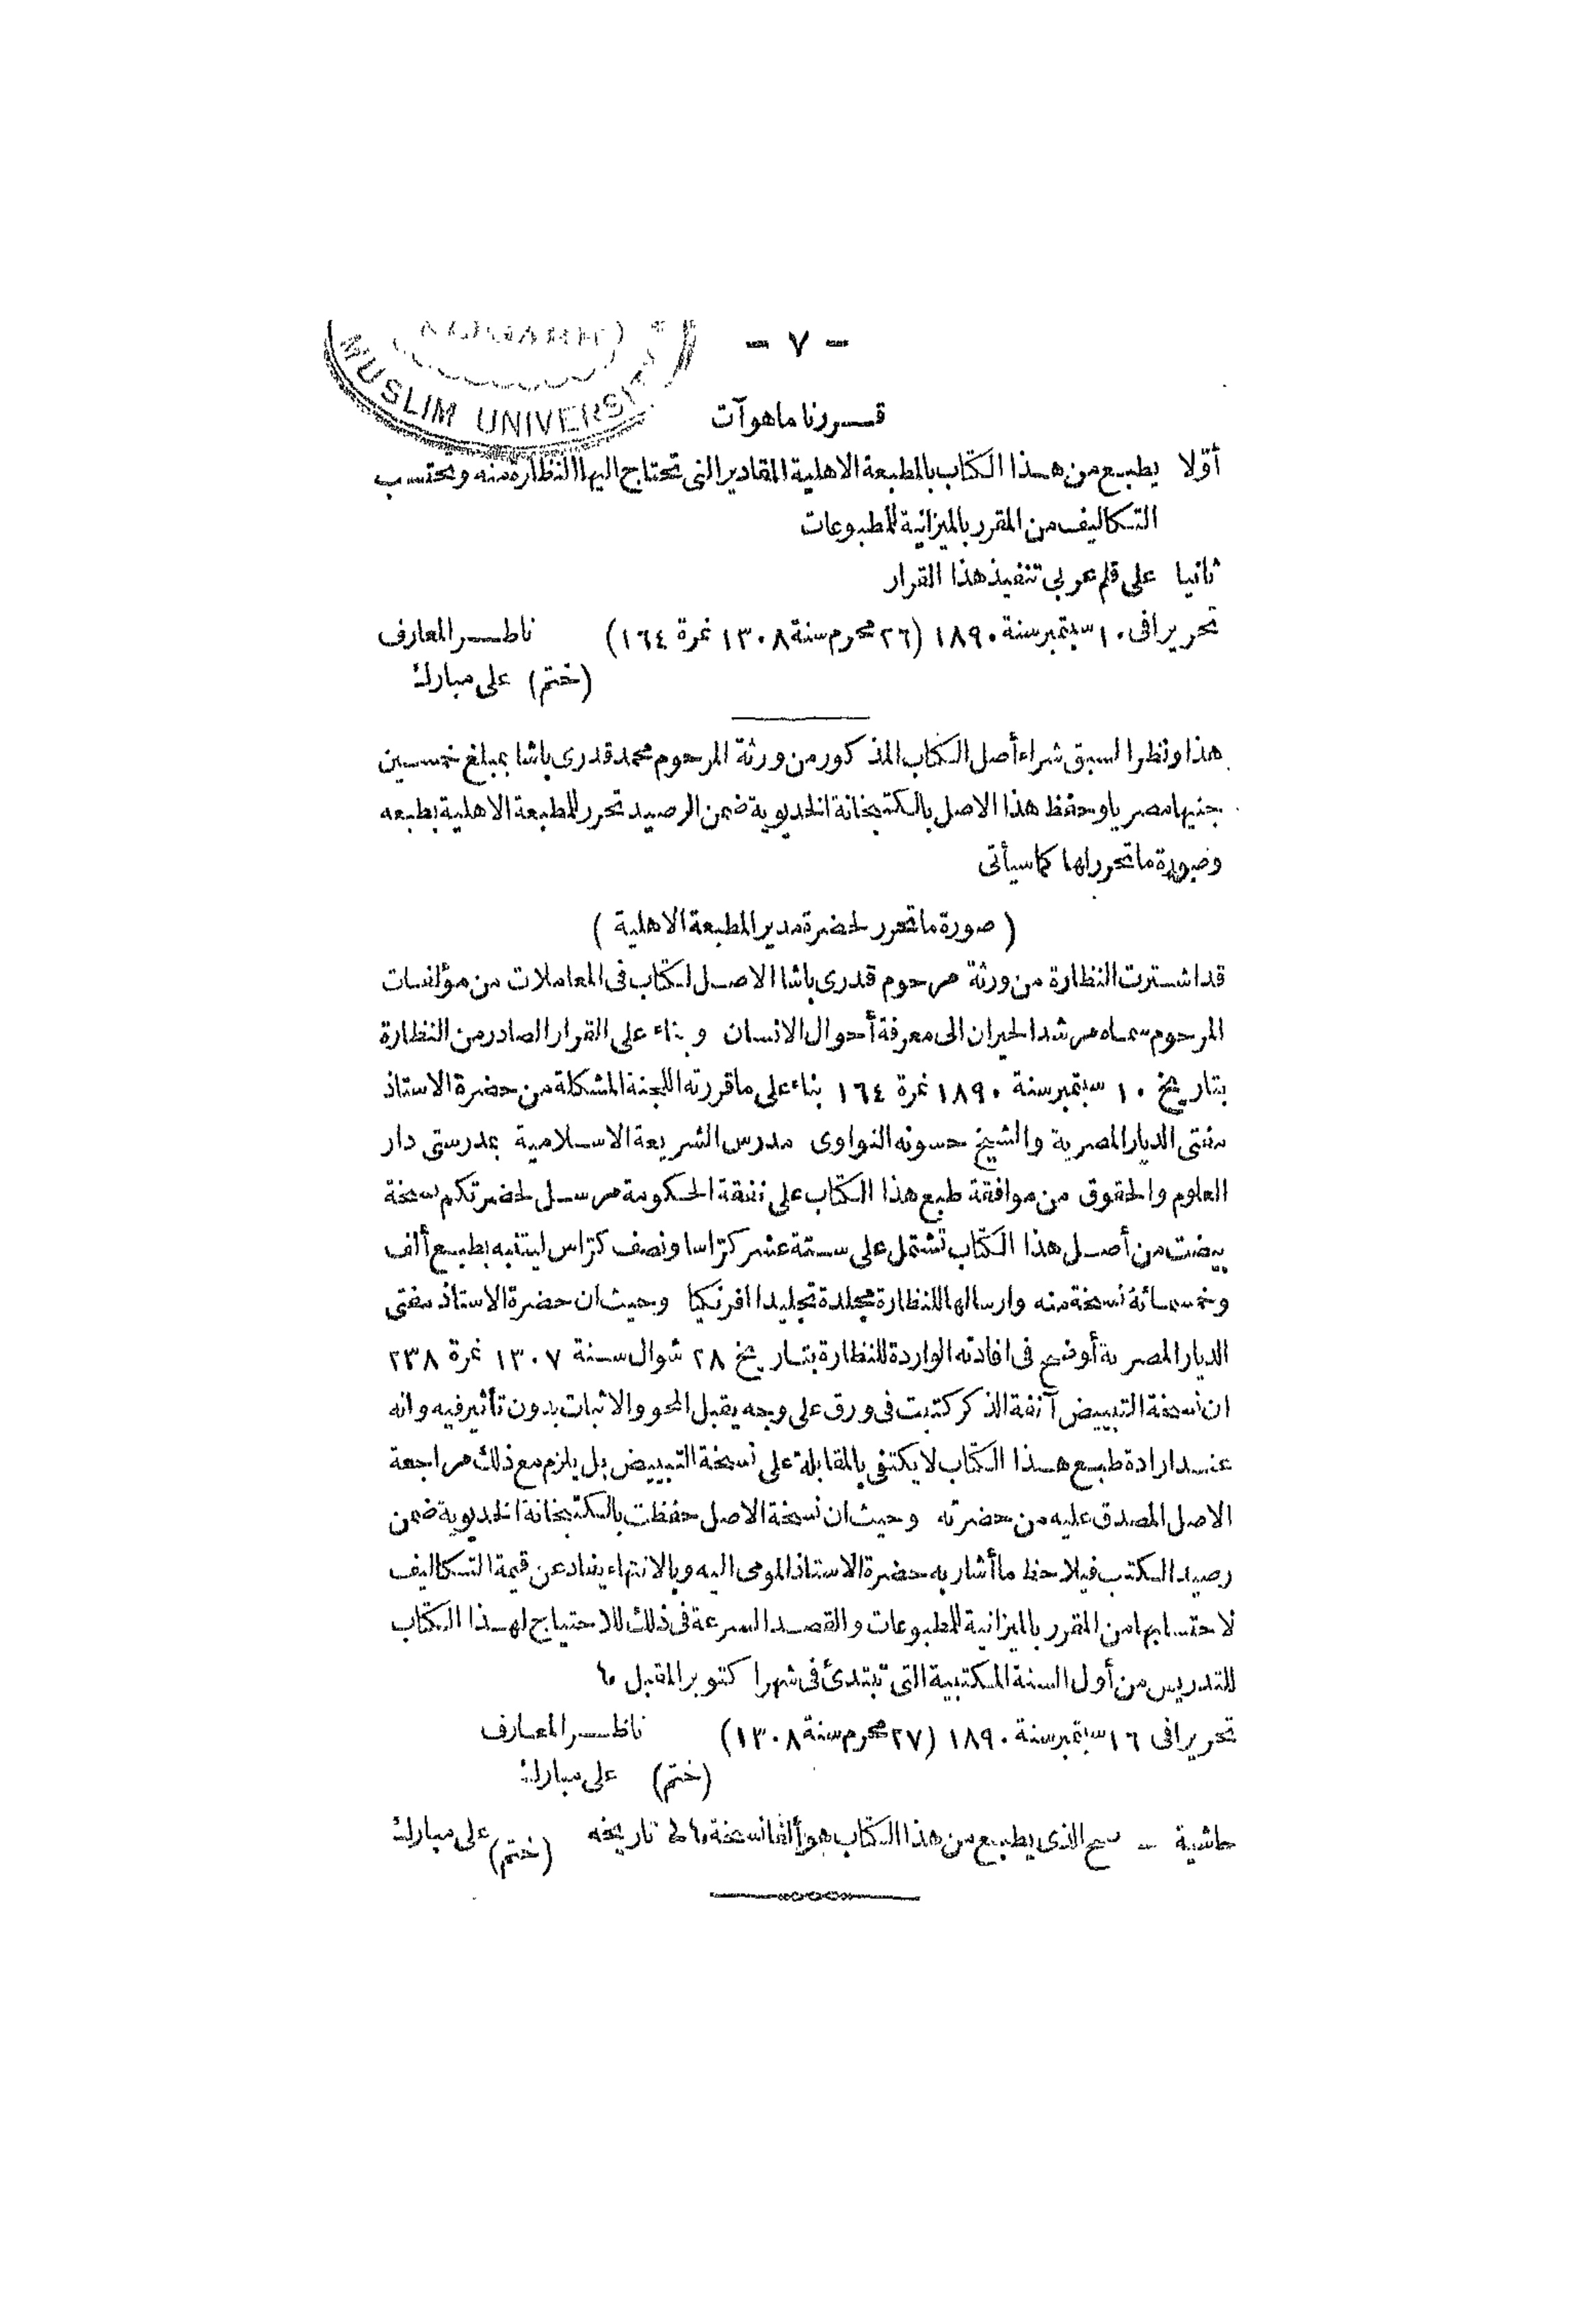 - ٧ -
MUSLIM UNIVERSITY
قــررنا ما هو آت
أوّلا يطبع من هذا الكتاب بالمطبعة الاهلية المقادير التى تحتاج اليها النظارة منه وتحتسب
التكاليف من المقرر بالميزانية للمطبوعات
ثانيا على قلم عربى تنفيذ هذا القرار
تحريرا فى ١٠ سبتمبر سنة ١٨٩٠ (٢٦ محرم سنة ١٣٠٨ نمرة ١٦٤) ناظر المعارف
(ختم) على مبارك
هذا ونظرا لسبق شراء أصل الكتاب المذكور من ورثة المرحوم محمد قدرى باشا بمبلغ خمسين
جنيها مصريا وحفظ هذا الاصل بالكتبخانة الخديوية ضمن الرصيد تحرر للمطبعة الاهلية بطبعه
وصورة ما تحرر لها كما سيأتى
(صورة ما تحرر لحضرة مدير المطبعة الاهلية)
قد اشترت النظارة من ورثة مرحوم قدرى باشا الاصل لكتاب فى المعاملات من مؤلفات
المرحوم سماه مرشد الحيران الى معرفة أحوال الانسان وبناء على القرار الصادر من النظارة
بتاريخ ١٠ سبتمبر سنة ١٨٩٠ نمرة ١٦٤ بناء على ما قررته اللجنة المشكلة من حضرة الاستاذ
مفتى الديار المصرية والشيخ حسونه النواوى مدرس الشريعة الاسلامية بمدرستى دار
العلوم والحقوق من موافقة طبع هذا الكتاب على نفقة الحكومة مرسل لحضرتكم نسخة
بيضت من أصل هذا الكتاب تشتمل على ستة عشر كرّاسا ونصف كرّاس ليتنبه بطبع ألف
وخمسمائة نسخة منه وارسالها للنظارة مجلدة تجليدا افرنكيا وحيث ان حضرة الاستاذ مفتى
الديار المصرية أوضح فى افادته الواردة للنظارة بتاريخ ٢٨ شوال سنة ١٣٠٧ نمرة ٢٣٨
ان نسخة التبييض آنفة الذكر كتبت فى ورق على وجه يقبل المحو والاثبات بدون تأثير فيه وانه
عند ارادة طبع هذا الكتاب لا يكتفى بالمقابلة على نسخة التبييض بل يلزم مع ذلك مراجعة
الاصل المصدق عليه من حضرته وحيث ان نسخة الاصل حفظت بالكتبخانة الخديوية ضمن
رصيد الكتب فيلاحظ ما أشار به حضرة الاستاذ المومى اليه وبالانتهاء يفاد عن قيمة التكاليف
لاحتسابها من المقرر بالميزانية للمطبوعات والقصد السرعة فى ذلك للاحتياج لهذا الكتاب
للتدريس من أول السنة المكتبية التى تبتدئ فى شهر اكتوبر المقبل
تحريرا فى ١٦ سبتمبر سنة ١٨٩٠ (٢٧ محرم سنة ١٣٠٨) ناظر المعارف
(ختم) على مبارك
حاشية - صح الذى يطبع من هذا الكتاب هو ألفا نسخة تاريخه (ختم) على مبارك